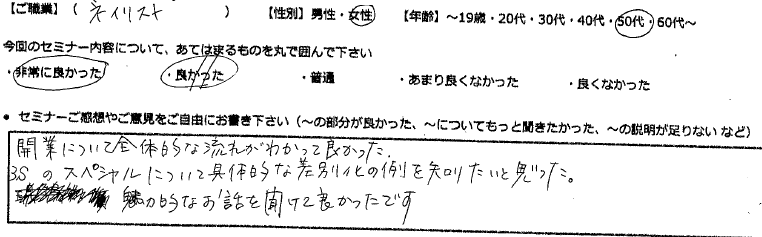 【ご職業】( ネイリスト ) 【性別】男性・女性 【年齢】～19歳・20代・30代・40代・50代・60代～
今回のセミナー内容について、あてはまるものを丸で囲んで下さい
・非常に良かった ・良かった ・普通 ・あまり良くなかった ・良くなかった
● セミナーご感想やご意見をご自由にお書き下さい（～の部分が良かった、～についてもっと聞きたかった、～の説明が足りない など）
開業について全体的な流れがわかって良かった.
3Sのスペシャルについて具体的な差別化の例を知りたいと思った。
魅力的なお話を聞けて良かったです